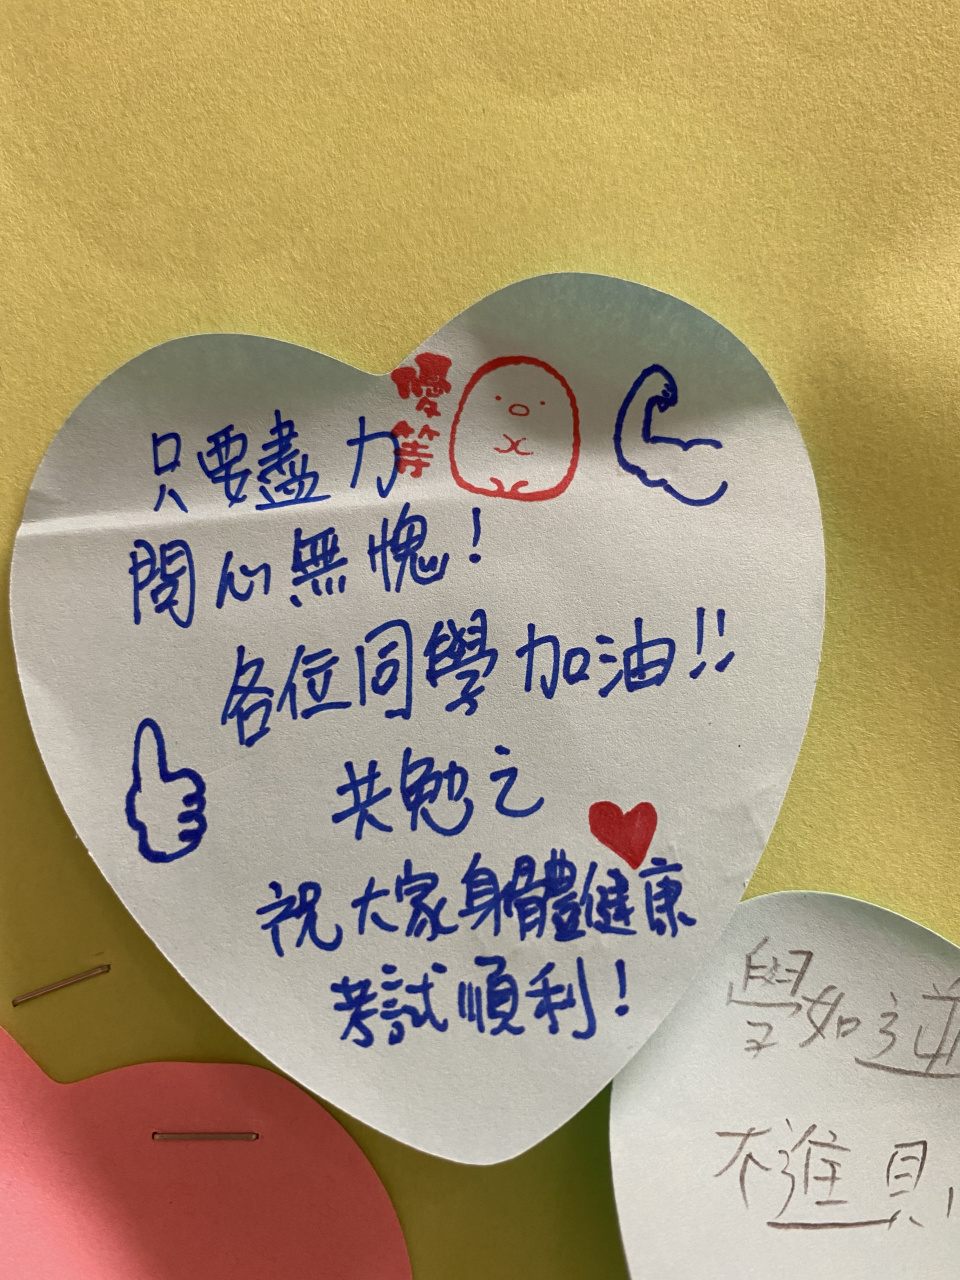 優等
只要盡力
問心無愧!
各位同學加油!!
共勉之
祝大家身體健康
考試順利!
學如逆
不進則